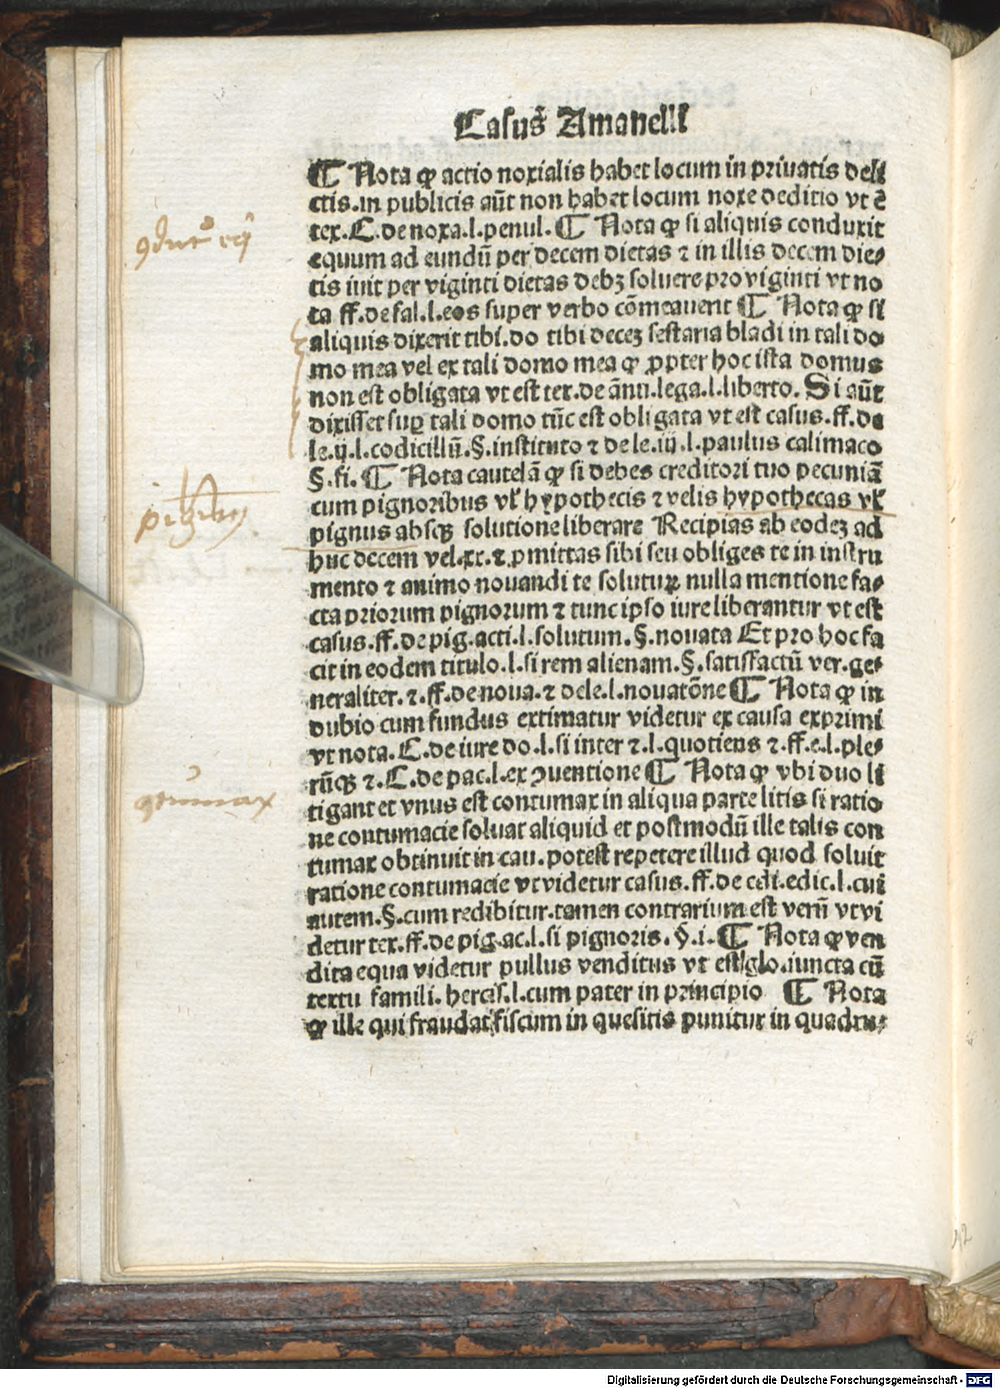 Casus Amanelli
¶ Nota ꝙ actio noxialis habet locum in priuatis deli
ctis.in publicis aūt non habet locum noxe deditio vt ē
tex.C.de noxa.l.penul.¶ Nota ꝙ si aliquis conduxit
equum ad eundū per decem dietas ⁊ in illis decem die⸗
tis iuit per viginti dietas debꝫ soluere pro viginti vt no
ta ff.de sal.l.eos super verbo cōmeauerit ¶ Nota ꝙ si
aliquis dixerit tibi.do tibi deceꝫ sestaria bladi in tali do
mo mea vel ex tali domo mea ꝙ ꝓpter hoc ista domus
non est obligata vt est tex.de ānu.lega.l.liberto. Si aūt
dixisset suꝑ tali domo tūc est obligata vt est casus.ff.de
le.ij.l.codicillū.§.instituto ⁊ de le.iij.l.paulus calimaco
§.fi. ¶ Nota cautelā ꝙ si debes creditori tuo pecuniā
cum pignoribus vł hypothecis ⁊ velis hypothecas vł
pignus absqꝫ solutione liberare Recipias ab eodeꝫ ad
huc decem vel.xx.⁊.ꝓmittas sibi seu obliges te in instru
mento ⁊ animo nouandi te soluturꝝ nulla mentione fa⸗
cta priorum pignorum ⁊ tunc ipso iure liberantur vt est
casus.ff.de pig.acti.l.solutum.§.nouata Et pro hoc fa
cit in eodem titulo.l.si rem alienam.§.satisfactū ver.ge⸗
neraliter.⁊.ff.de noua.⁊ dele.l.nouatōne ¶ Nota ꝙ in
dubio cum fundus extimatur videtur ex causa exprimi
vt nota.C.de iure do.l.si inter ⁊.l.quotiens ⁊.ff.e.l.ple⸗
rūqꝫ ⁊.C.de pac.l.ex ꝯuentione ¶ Nota ꝙ vbi duo li
tigant et vnus est contumax in aliqua parte litis si ratio
ne contumacie soluat aliquid et postmodū ille talis con
tumax obtinuit in cau.potest repetere illud quod soluit
ratione contumacie vt videtur casus.ff.de edi.edic.l.cui
autem.§.cum redibitur.tamen contrarium est verū vt vi
detur tex.ff.de pig.ac.l.si pignoris.§.i.¶ Nota ꝙ ven
dita equa videtur pullus venditus vt est glo.iuncta cū
textu famili. hercis.l.cum pater in principio ¶ Nota
ꝙ ille qui fraudat fiscum in quesitis punitur in quadru⸗
ꝯtumax
42
Digitalisierung gefördert durch die Deutsche Forschungsgemeinschaft - DFG